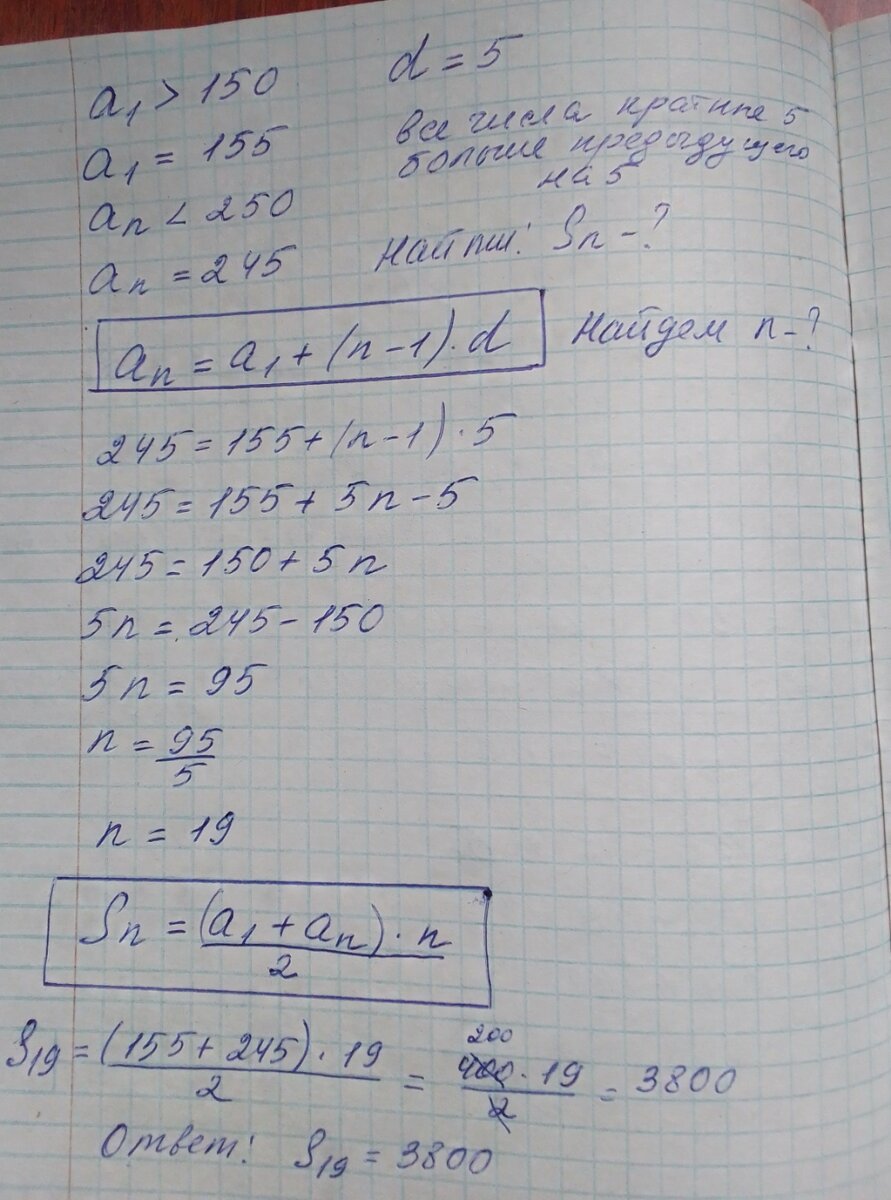 a₁ > 150 d = 5
a₁ = 155 все числа кратные 5
больше предыдущего
на 5
aₙ < 250
aₙ = 245 Найти: Sₙ - ?
aₙ = a₁ + (n - 1) · d Найдем n - ?
245 = 155 + (n - 1) · 5
245 = 155 + 5n - 5
245 = 150 + 5n
5n = 245 - 150
5n = 95
n = 95/5
n = 19
Sₙ = (a₁ + aₙ) · n / 2
S₁₉ = (155 + 245) · 19 / 2 = 200 400 · 19 / 2 = 3800
Ответ: S₁₉ = 3800